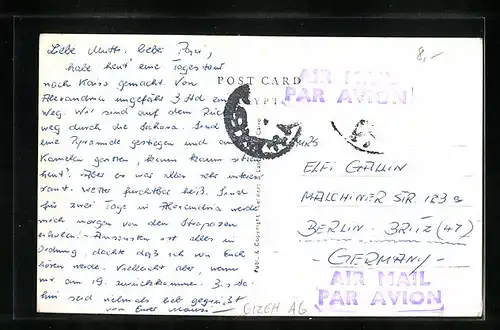 8,-
Liebe Mutti, liebe
habe heut' eine Tagestour
nach Kairo gemacht. Von
Alexandria ungefähr 3 Std. ein
Weg. Wir sind auf dem Rück
weg durch die Sahara. Sind
eine Pyramide gestiegen und auf
Kamelen geritten, kaum
heut'. Aber es war alles sehr interes
sant. Wetter furchtbar heiß. Sind
für zwei Tage in Alexandria werde
mich morgen von den Strapazen
erholen! Ansonsten ist alles in
Ordnung, dachte daß ich von Euch
hören werde. Vielleicht aber, wenn
wir am 19. zurückkommen.
hin seid vielmals lieb gegrüßt
von Eurer
POST CARD
EGYPT
AIR MAIL
PAR AVION
ELFI GALLIN
MALCHINER STR. 123
BERLIN - BRITZ (47)
- GERMANY -
AIR MAIL
PAR AVION
GIZEH ÄG